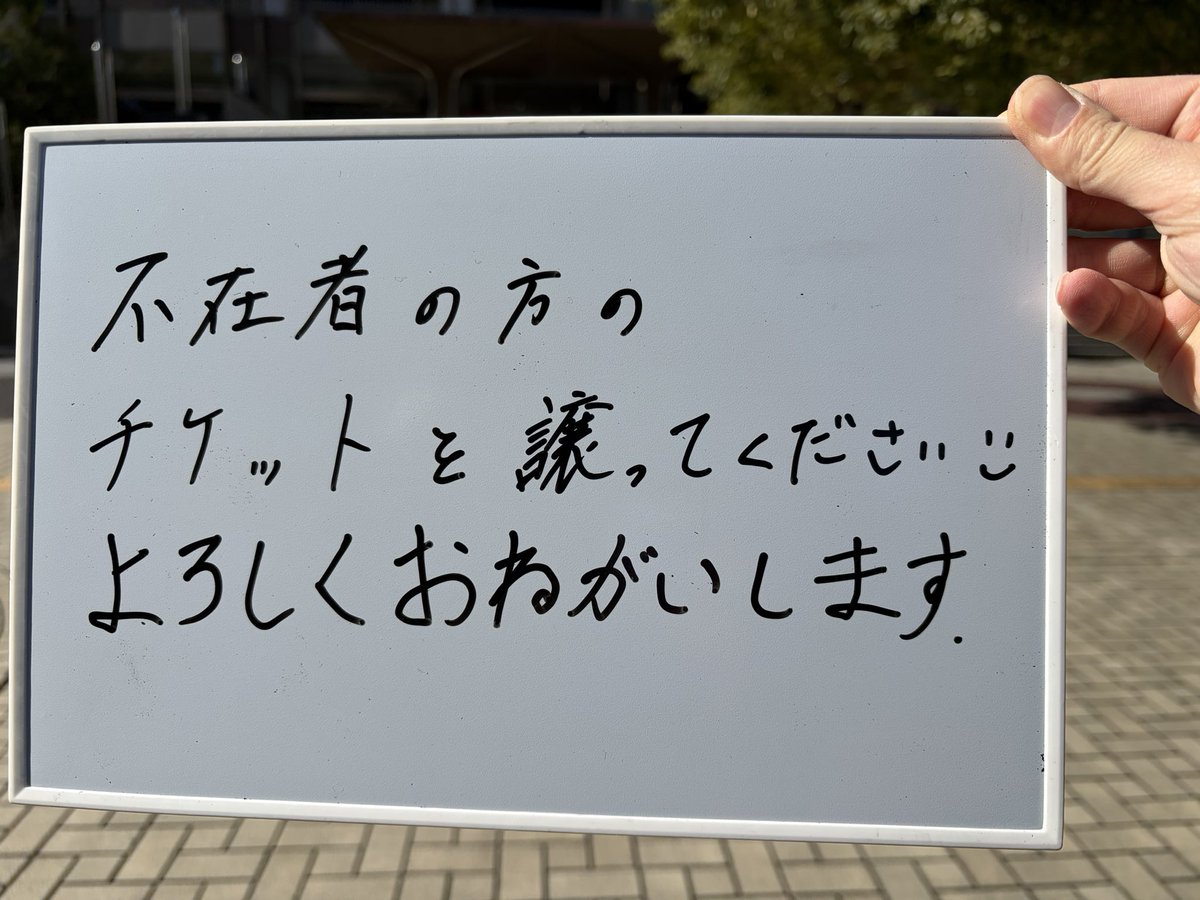 不在者の方の
チケットを譲ってください :)
よろしくおねがいします.